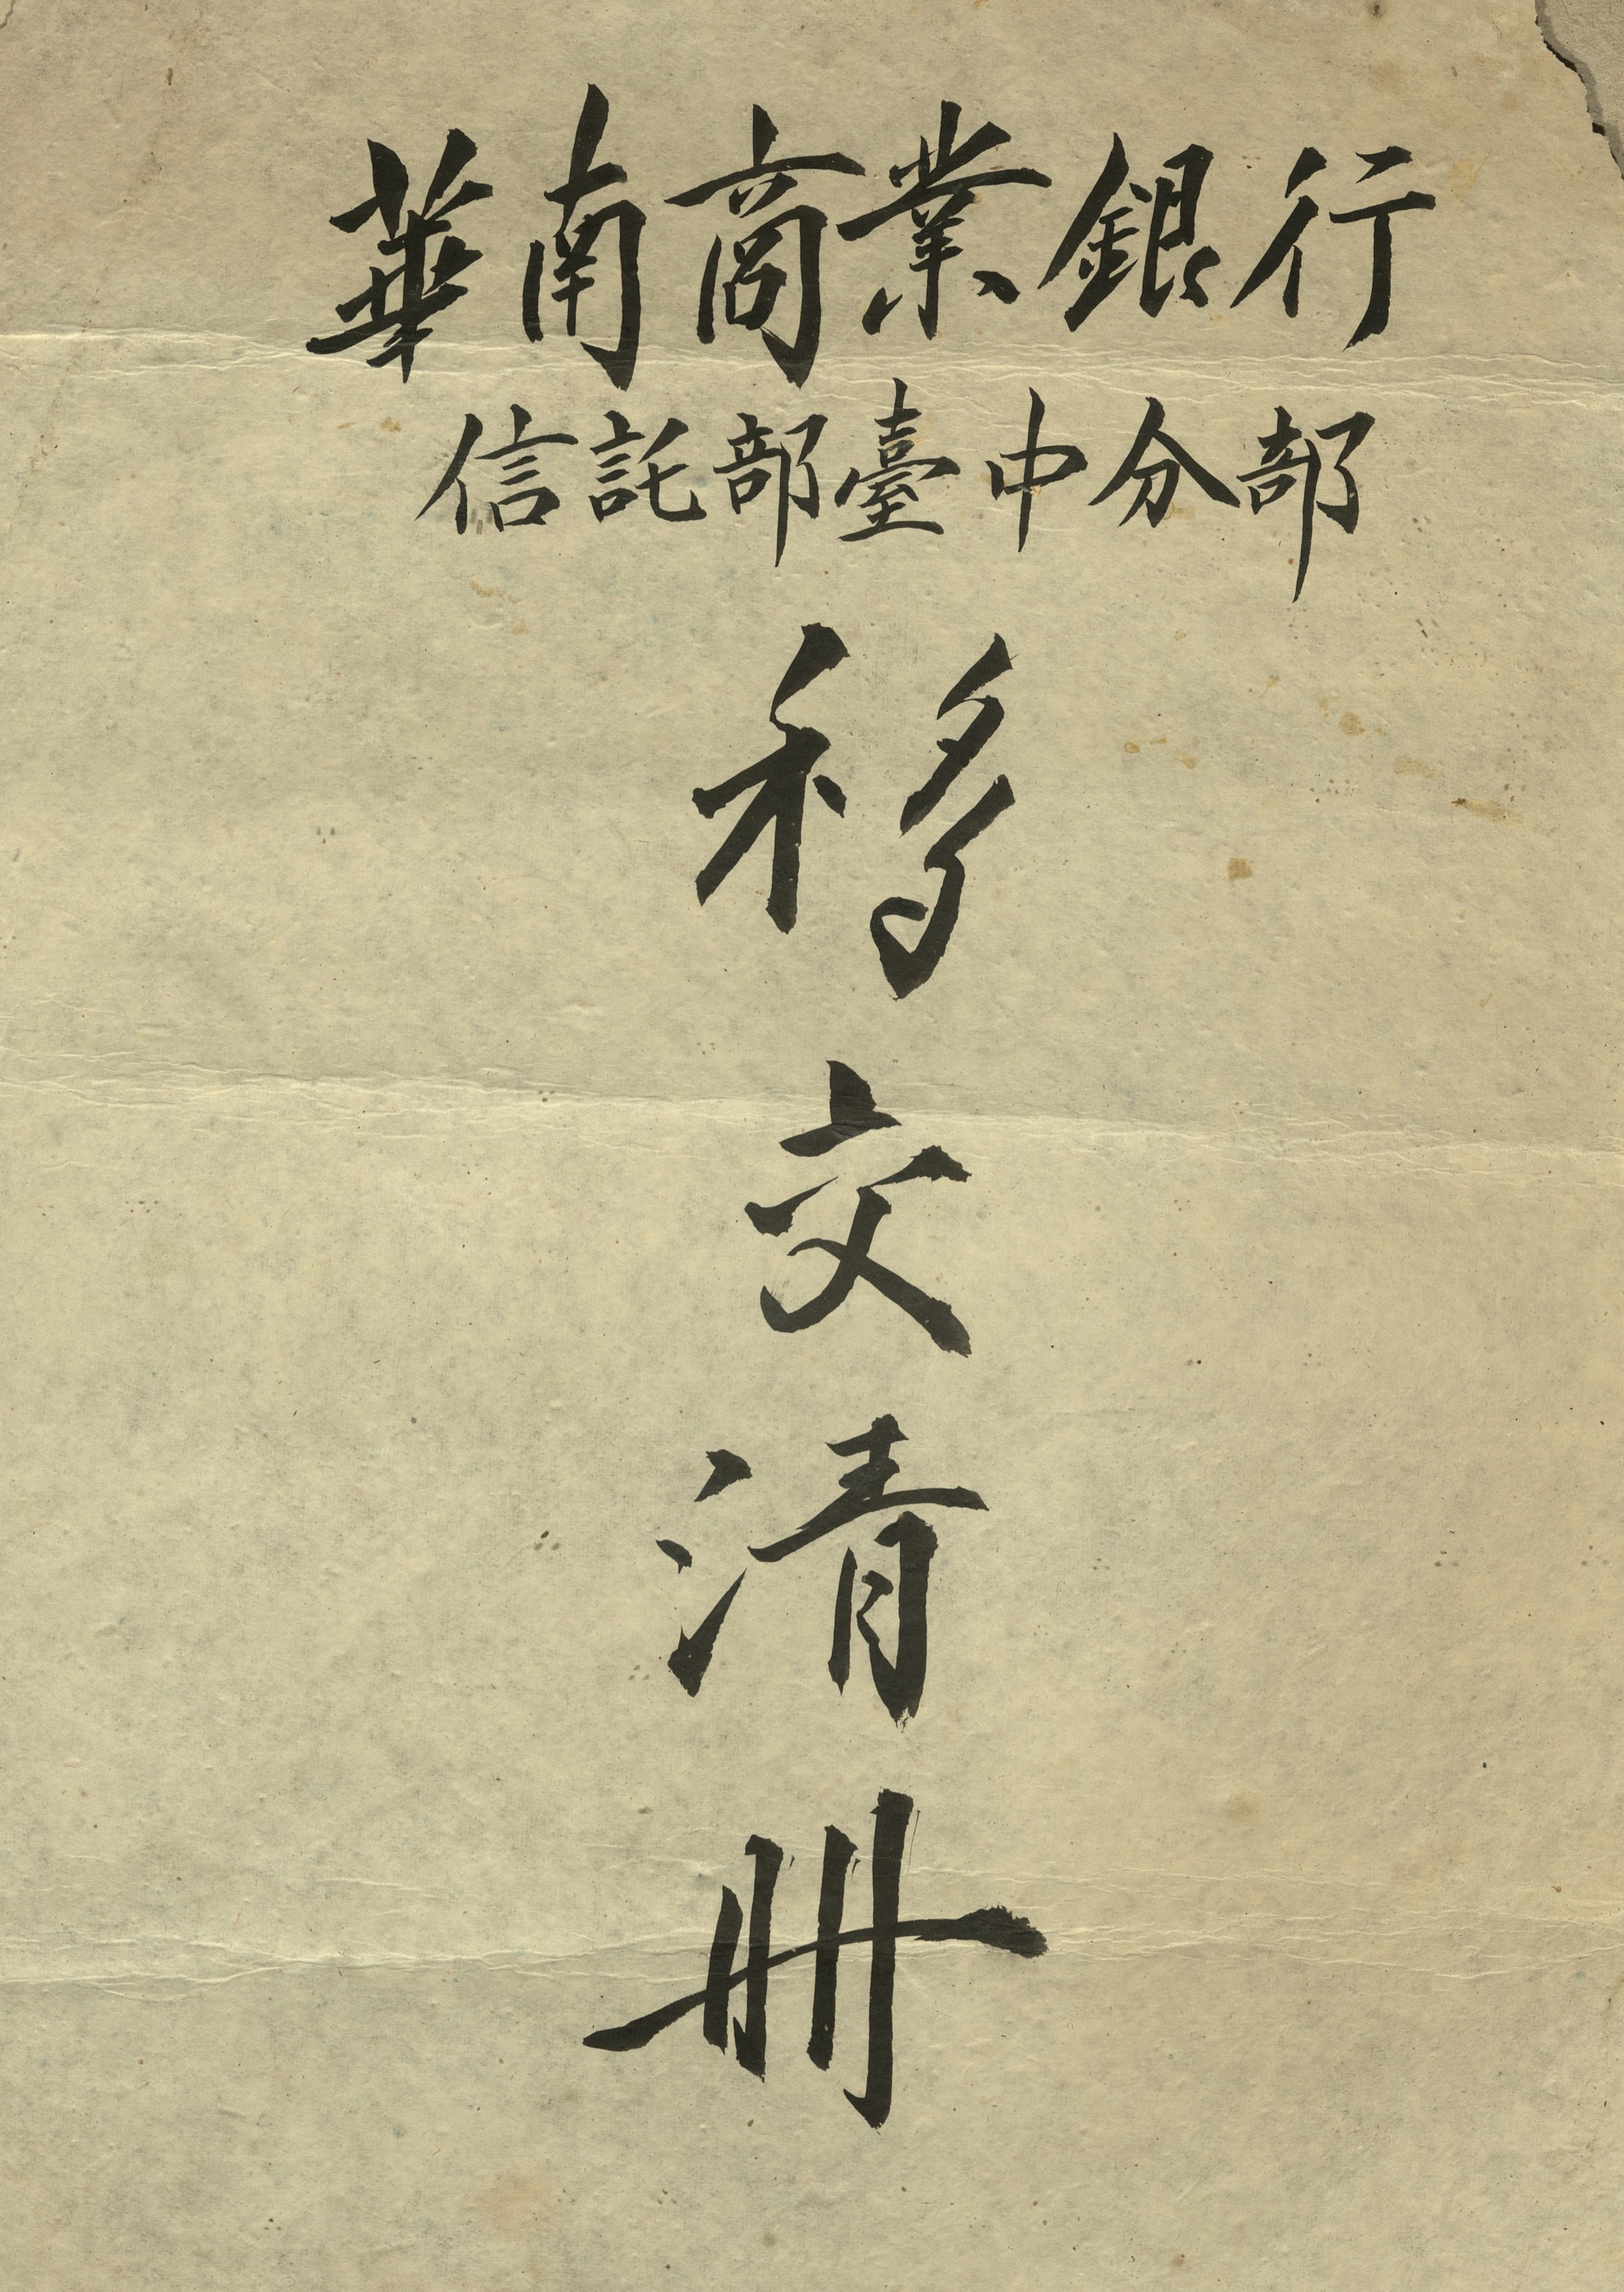 華南商業銀行
信託部臺中分部
移交清冊